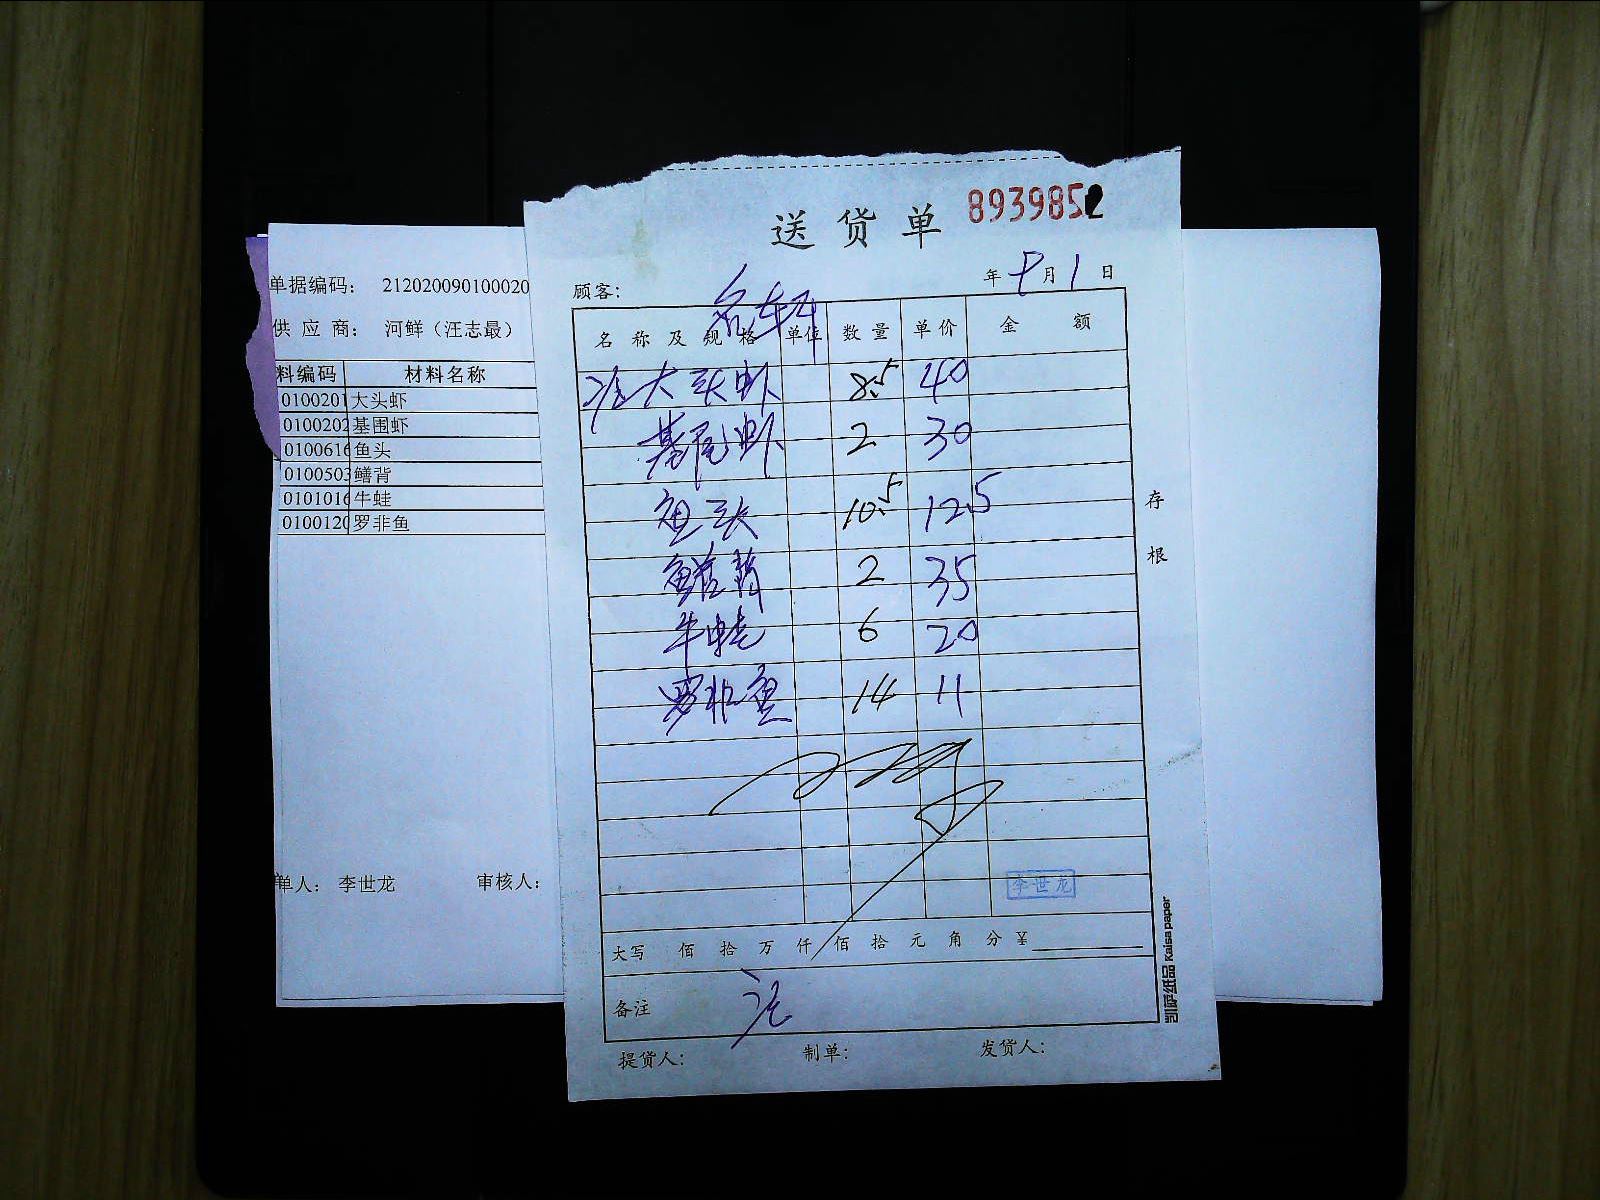 送货单 8939852
年 9月1日
顾客: 名轩
名称及规格 单位 数量 单价 金额
大头虾 8.5 40
基尾虾 2 30
鱼头 10.5 12.5
鳝背 2 35
牛蛙 6 20
罗非鱼 14 11
李世龙
大写 佰 拾 万 仟 佰 拾 元 角 分 ¥
备注 汪
提货人: 制单: 发货人:
存根
凯萨纸品 Kaisa paper
单据编码: 212020090100020
供应商: 河鲜(汪志最)
料编码 材料名称
0100201 大头虾
0100202 基围虾
0100616 鱼头
0100503 鳝背
0101016 牛蛙
0100120 罗非鱼
单人: 李世龙 审核人: